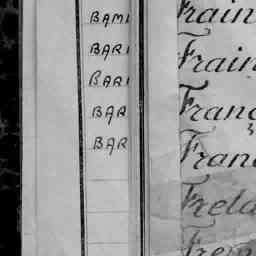 BAMI
BARI
BARI
BAR
BAR
Frain
Frain
Franç
Fran
Frela